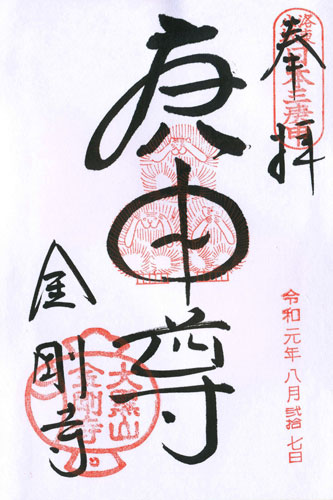 洛東日本三庚申
奉拝
令和元年八月弐拾七日
庚申尊
金剛寺
大黒山
金剛寺